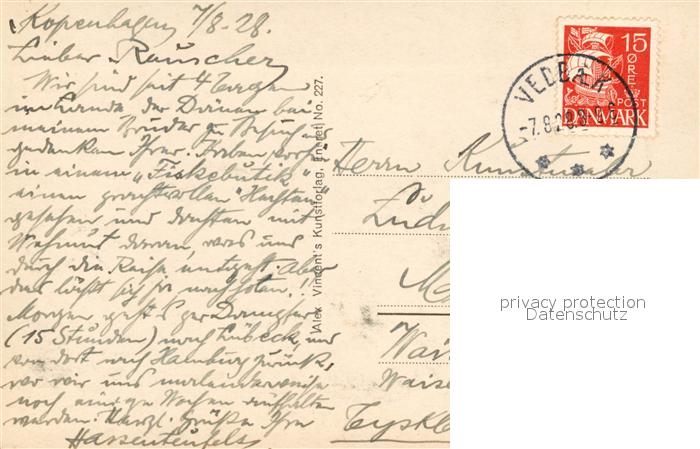 Kopenhagen 7/8-28.
Lieber Rauscher
Wir sind seit 4 Tagen
im Lande der Dänen bei
meinem Bruder zu Besuch u.
gedenken Ihrer. Haben vorhin
in einem „Fiskebutik"
einen prachtvollen "Hechten"
gesehen und dachten mit
Wehmut daran, was uns
durch die Reise entgeht. Aber
das läßt sich ja nachholen.!!
Morgen geht's per Dampfer
(15 Stunden) nach Lübeck und
von dort nach Hamburg zurück,
wo wir uns
noch einige Wochen aufhalten
werden. Herzl. Grüße Ihre
Hassenteufels
Alex Vincent's Kunstforlag, Eneret No. 227.
15
ØRE
POST
DANMARK
VEDBÆK
-7.8.28.8
Herrn Kunstmaler
Ludw
Wai
Waise
Tyskl
privacy protection
Datenschutz